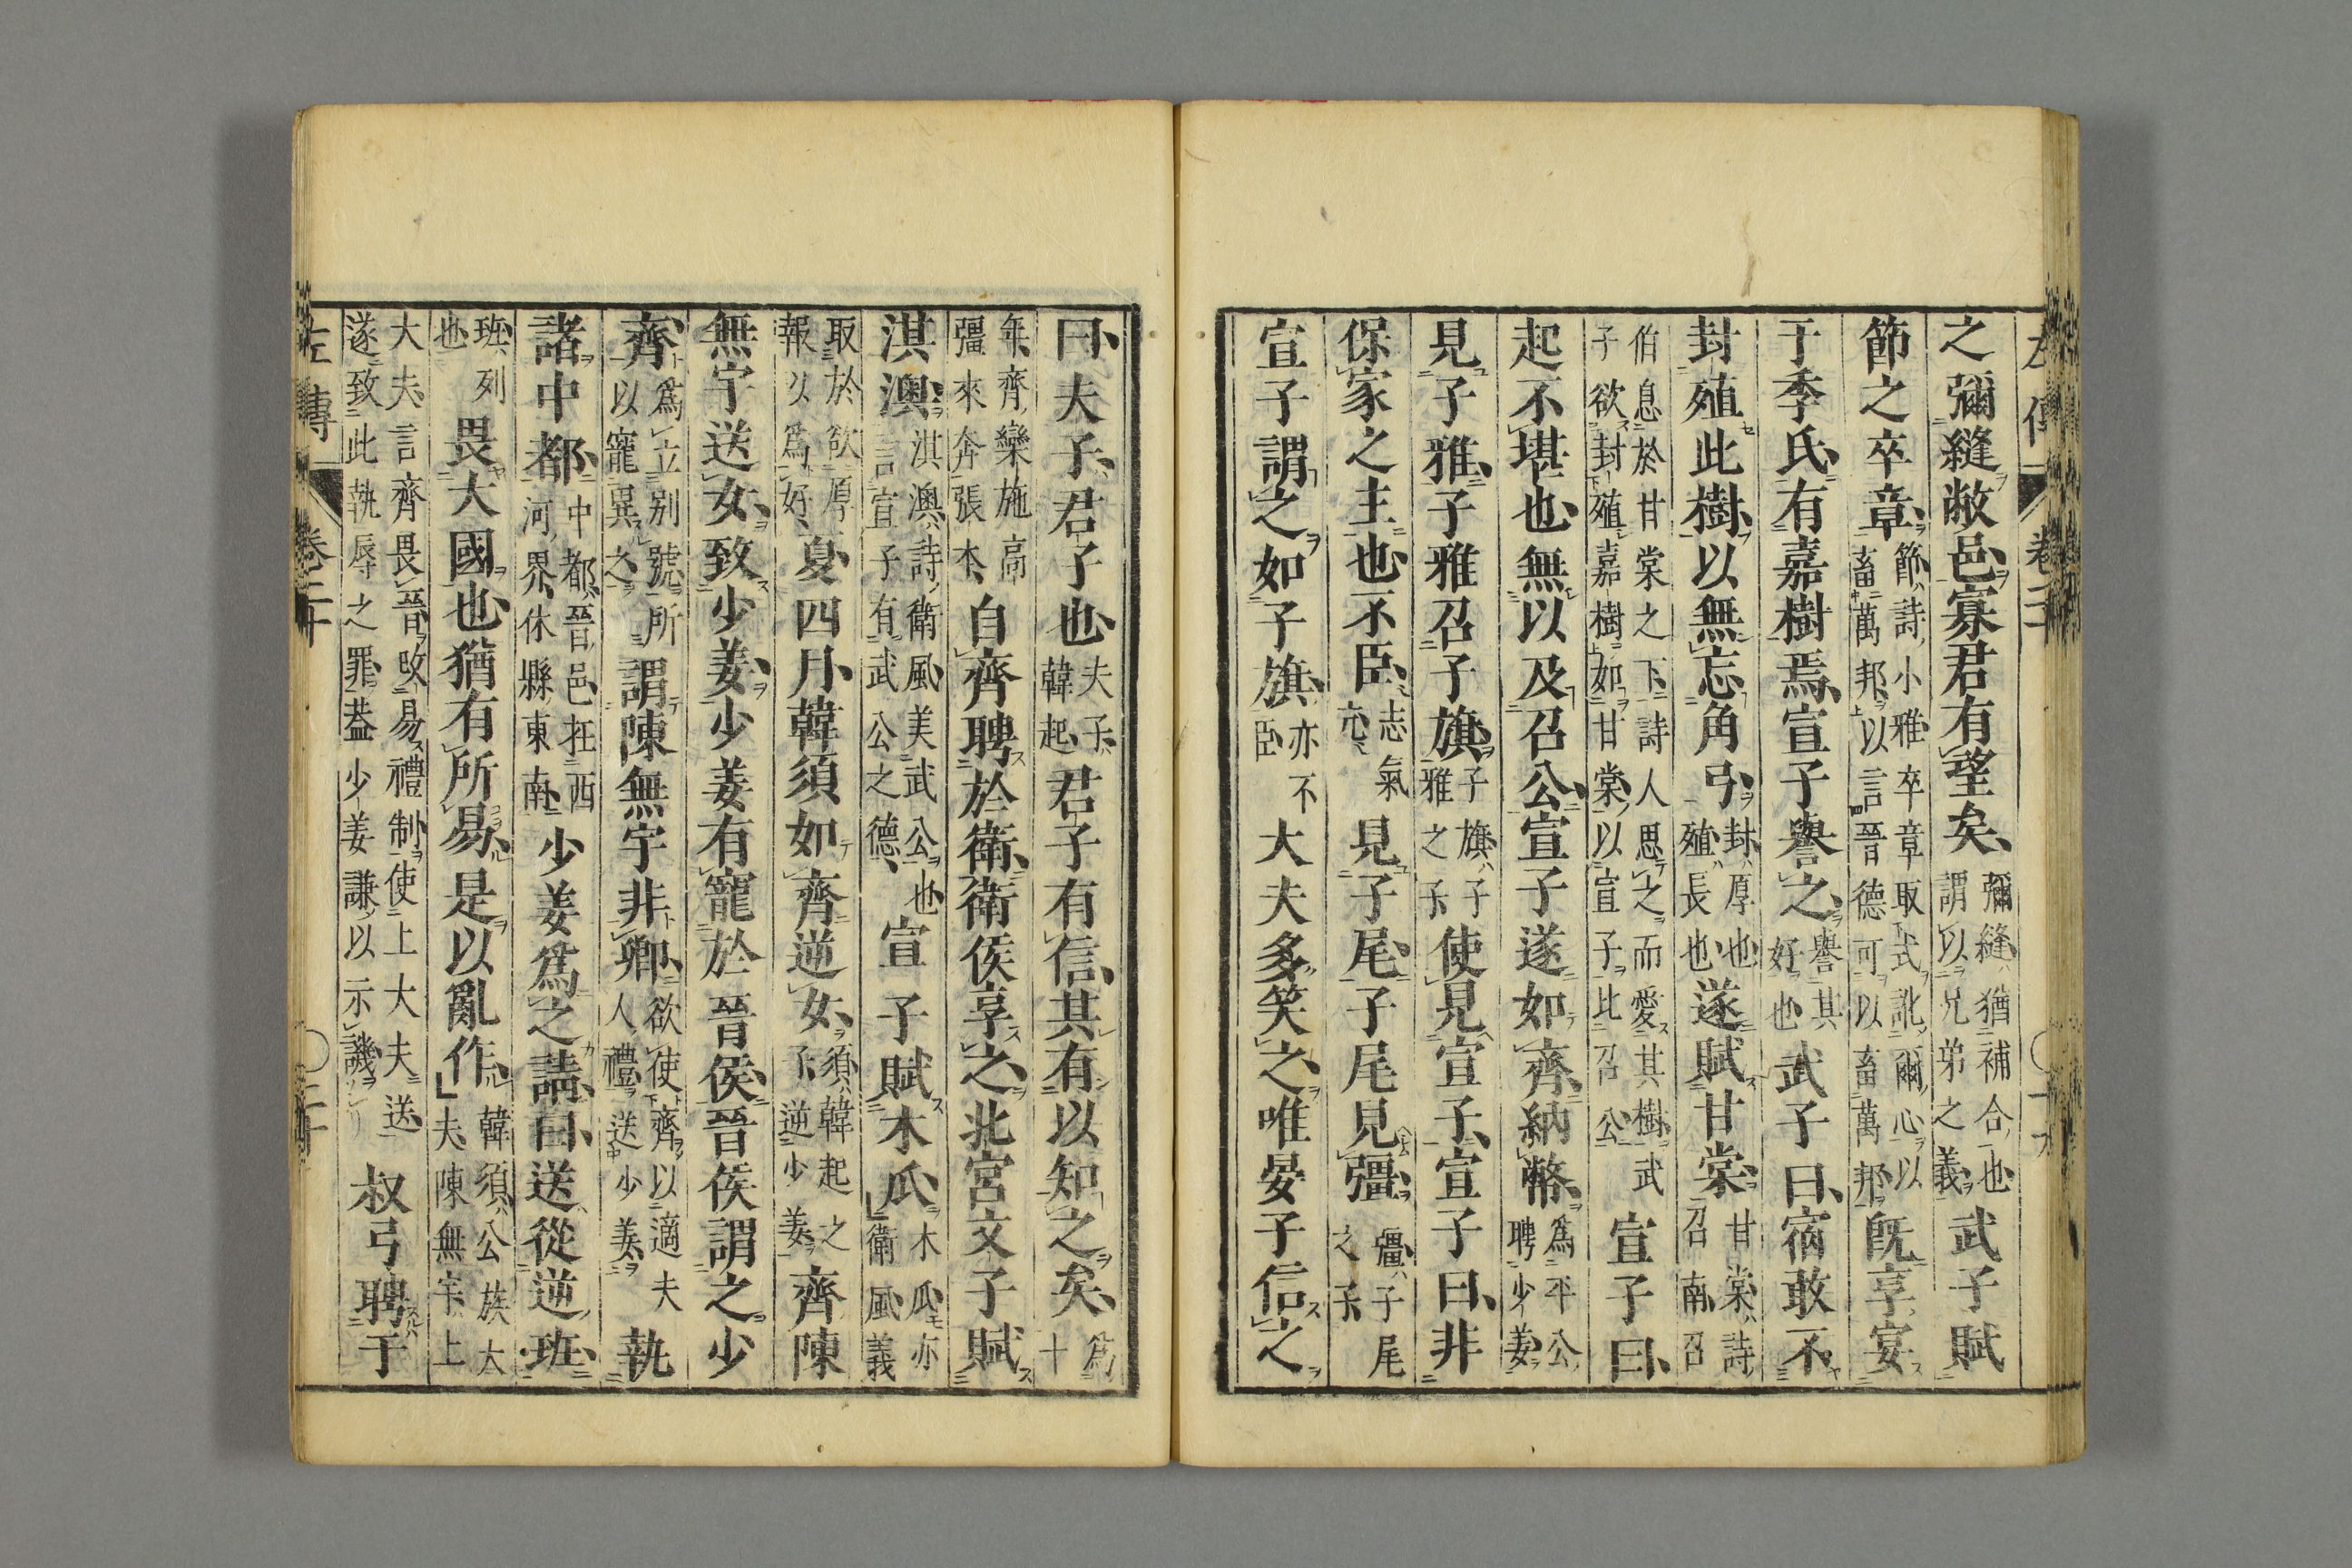 左傳 卷二十
之彌縫敝邑寡君有望矣彌縫猶補合也謂以兄弟之義武子賦
節之卒章節詩小雅卒章取式訛爾心以畜萬邦以言晉德可以畜萬邦旣享宴
于季氏有嘉樹焉宣子譽之譽其好也武子曰宿敢不
封殖此樹以無忘角弓封厚也殖長也遂賦甘棠甘棠詩召南召
伯息於甘棠之下詩人思之而愛其樹武子欲封殖嘉樹如甘棠以宣子比召公宣子曰
起不堪也無以及召公宣子遂如齊納幣爲平公聘少姜
見子雅子雅召子旗子旗子雅之子使見宣子宣子曰非
保家之主也不臣志氣亢見子尾子尾見彊彊子尾之子
宣子謂之如子旗亦不臣大夫多笑之唯晏子信之
曰夫子君子也夫子韓起君子有信其有以知之矣爲十
年齊欒施高彊來奔張本自齊聘於衛衛侯享之北宮文子賦
淇澳淇澳詩衛風美武公也言宣子有武公之德宣子賦木瓜木瓜亦衛風義
取於欲厚報以爲好夏四月韓須如齊逆女須韓起之子逆少姜齊陳
無宇送女致少姜少姜有寵於晉侯晉侯謂之少
齊爲立別號所以寵異之謂陳無宇非卿欲使齊以適夫人禮送少姜執
諸中都中都晉邑在西河界休縣東南少姜爲之請曰送從逆班
班列也畏大國也猶有所易是以亂作韓須公族大夫陳無宇上
大夫言齊畏晉改易禮制使上大夫送遂致此執辱之罪葢少姜謙以示譏叔弓聘于
左傳 卷二十 二十